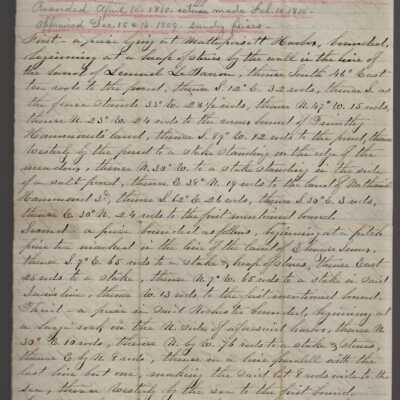 Recorded April 16, 1810. return made Feb. 10, 1810.
Appraised Dec. 15 & 16. 1809. sundry pieces.
First - a piece lying at Mattapoisett Harbor, bounded,
beginning at a heap of stones by the wall in the line of
the land of Lemuel LeBaron, thence South 46° East
ten rods to the pond, thence S. 12° E. 32 rods, thence S. as
the fence stands 33° W. 24½ rods, thence N. 47° W. 15 rods,
thence N. 23° W. 24 rods to the corner bound of Timothy
Hammonds' land, thence S. 89° W. 12 rods to the pond, thence
Westerly by the pond to a stake standing on the edge of the
meadow, thence N. 30° W. to a stake standing in the side
of a salt pond, thence E. 34° N. 19 rods to the land of Nathaniel
Hammond 3d, thence S. 62° E. 26 rods, thence S. 30° E. 3 rods,
thence E. 30° N. 24 rods to the first mentioned bound.
Second - a piece bounded as follows, beginning at a pitch
pine tree marked in the line of the land of
thence S. 9° E. 65 rods to a stake & heap of stones, thence East
26 rods to a stake, thence N. 9° W. 65 rods to a stake in said
line, thence W. 13 rods to the first mentioned bound.
Third - a piece in said Rochester bounded, beginning at
a large rock on the N. side of aforesaid harbor, thence N.
30° E. 10 rods, thence N. by W. 76 rods to a stake & stones,
thence E. by N. 8 rods, thence in a line parallel with the
last line but one, making the said lot 8 rods wide to the
sea, thence Westerly by the sea to the first bound.